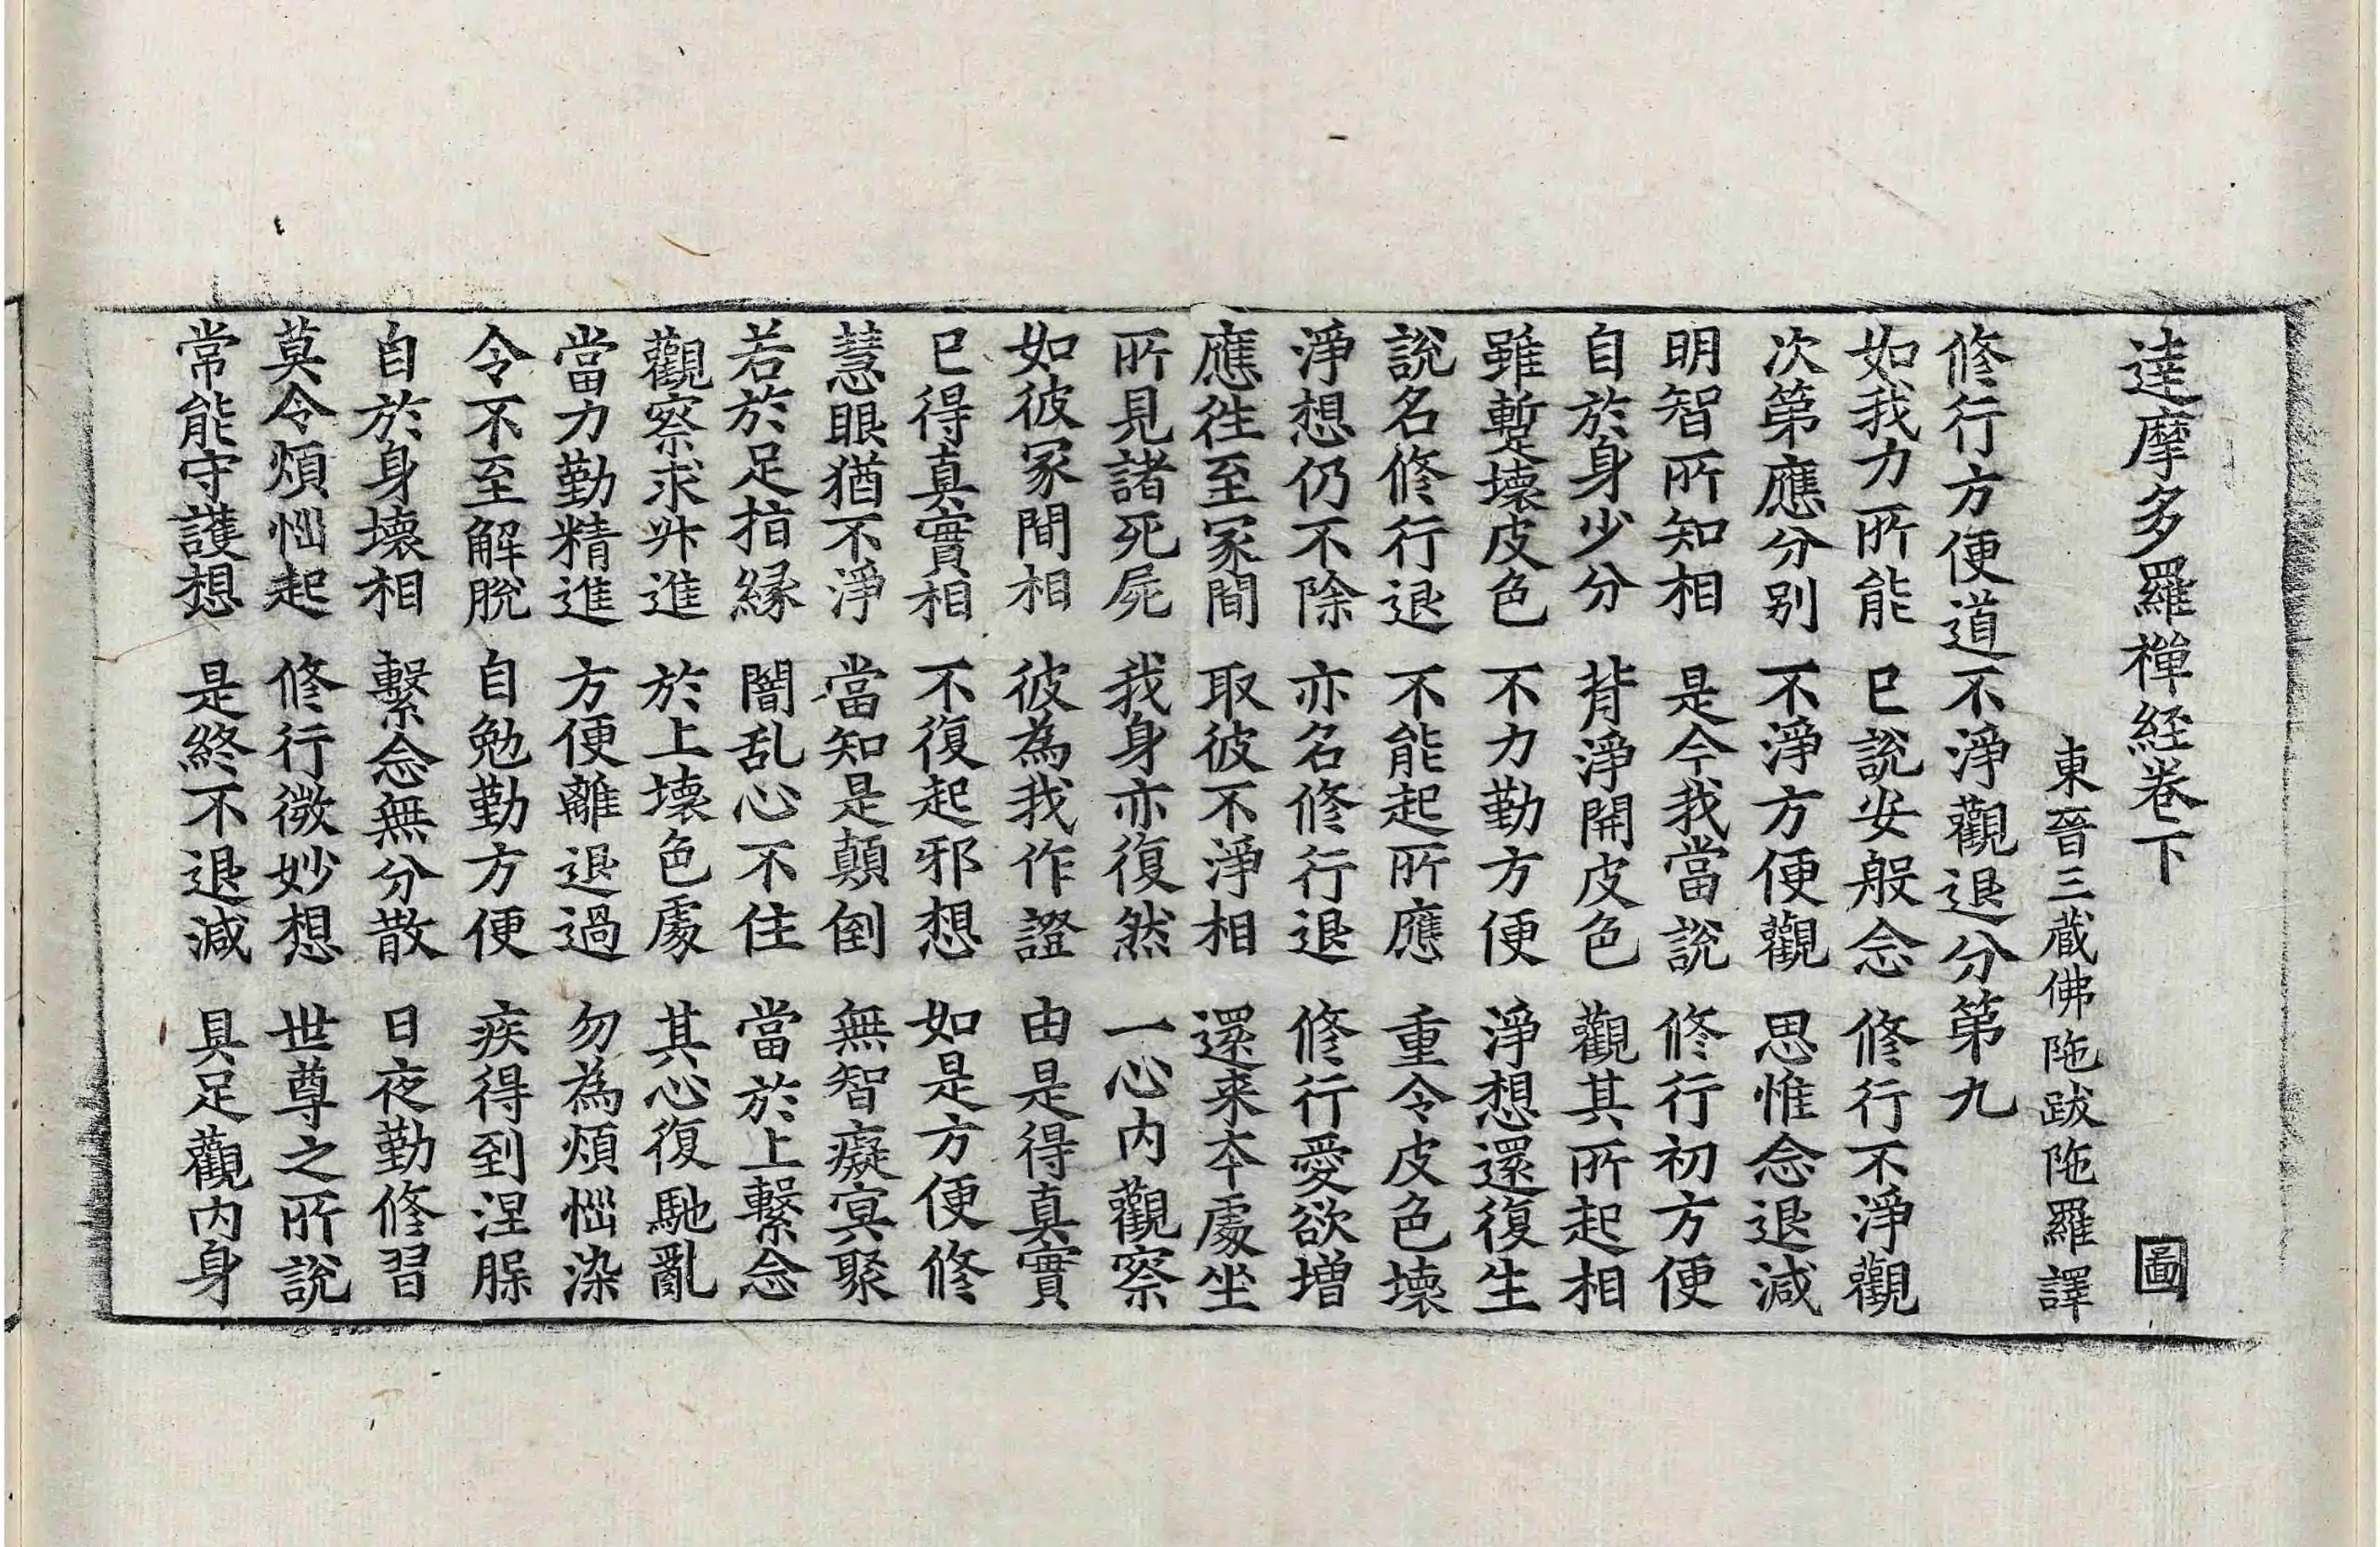 達摩多羅禪経卷下 圖
東晉三蔵佛陁跋陁羅譯
修行方便道不淨觀退分第九
如我力所能 已說安般念 修行不淨觀
次第應分别 不淨方便觀 思惟念退減
明智所知相 是今我當說 修行初方便
自於身少分 背淨開皮色 觀其所起相
雖蹔壞皮色 不力勤方便 淨想還復生
說名修行退 不能起所應 重令皮色壞
淨想仍不除 亦名修行退 修行愛欲增
應往至冢間 取彼不淨相 還来本處坐
所見諸死屍 我身亦復然 一心内觀察
如彼冢間相 彼為我作證 由是得真實
已得真實相 不復起邪想 如是方便修
慧眼猶不淨 當知是顛倒 無智癡冥聚
若於足指縁 闇乱心不住 當於上繫念
觀察求升進 於上壞色處 其心復馳亂
當力勤精進 方便離退過 勿為煩惱染
令不至解脫 自勉勤方便 疾得到涅槃
自於身壞相 繫念無分散 日夜勤修習
莫令煩惱起 修行微妙想 世尊之所說
常能守護想 是終不退減 具足觀内身